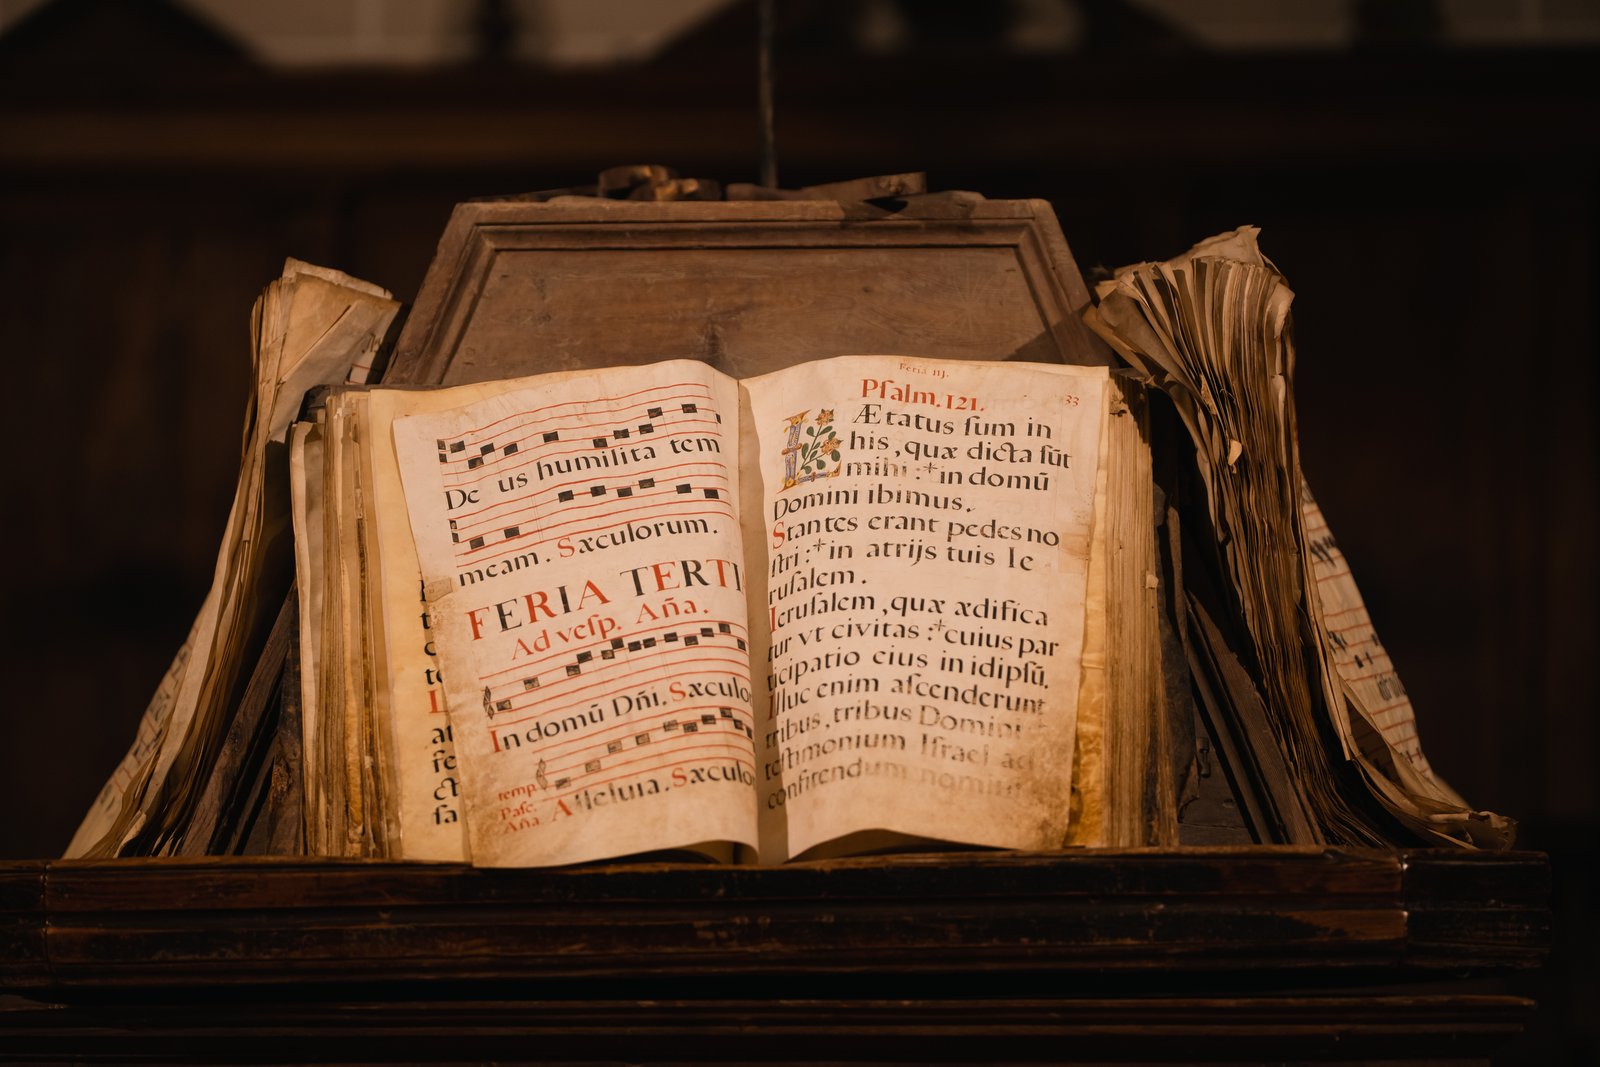 De us humilita tem
meam. Sæculorum.
FERIA TERTI
Ad veſp. Aña.
In domũ Dñi. Sæculo
temp.
Paſc.
Aña.
Alleluia. Sæculo
Feria III.
33
Pſalm. 121.
LÆtatus ſum in
his, quæ dicta ſũt
mihi : * in domũ
Domini ibimus.
Stantes erant pedes no
ſtri : * in atrijs tuis Ie
ruſalem.
Ieruſalem, quæ ædifica
tur vt civitas : * cuius par
ticipatio eius in idipſũ.
Illuc enim aſcenderunt
tribus, tribus Domini
teſtimonium Iſrael ad
confitendum nomini